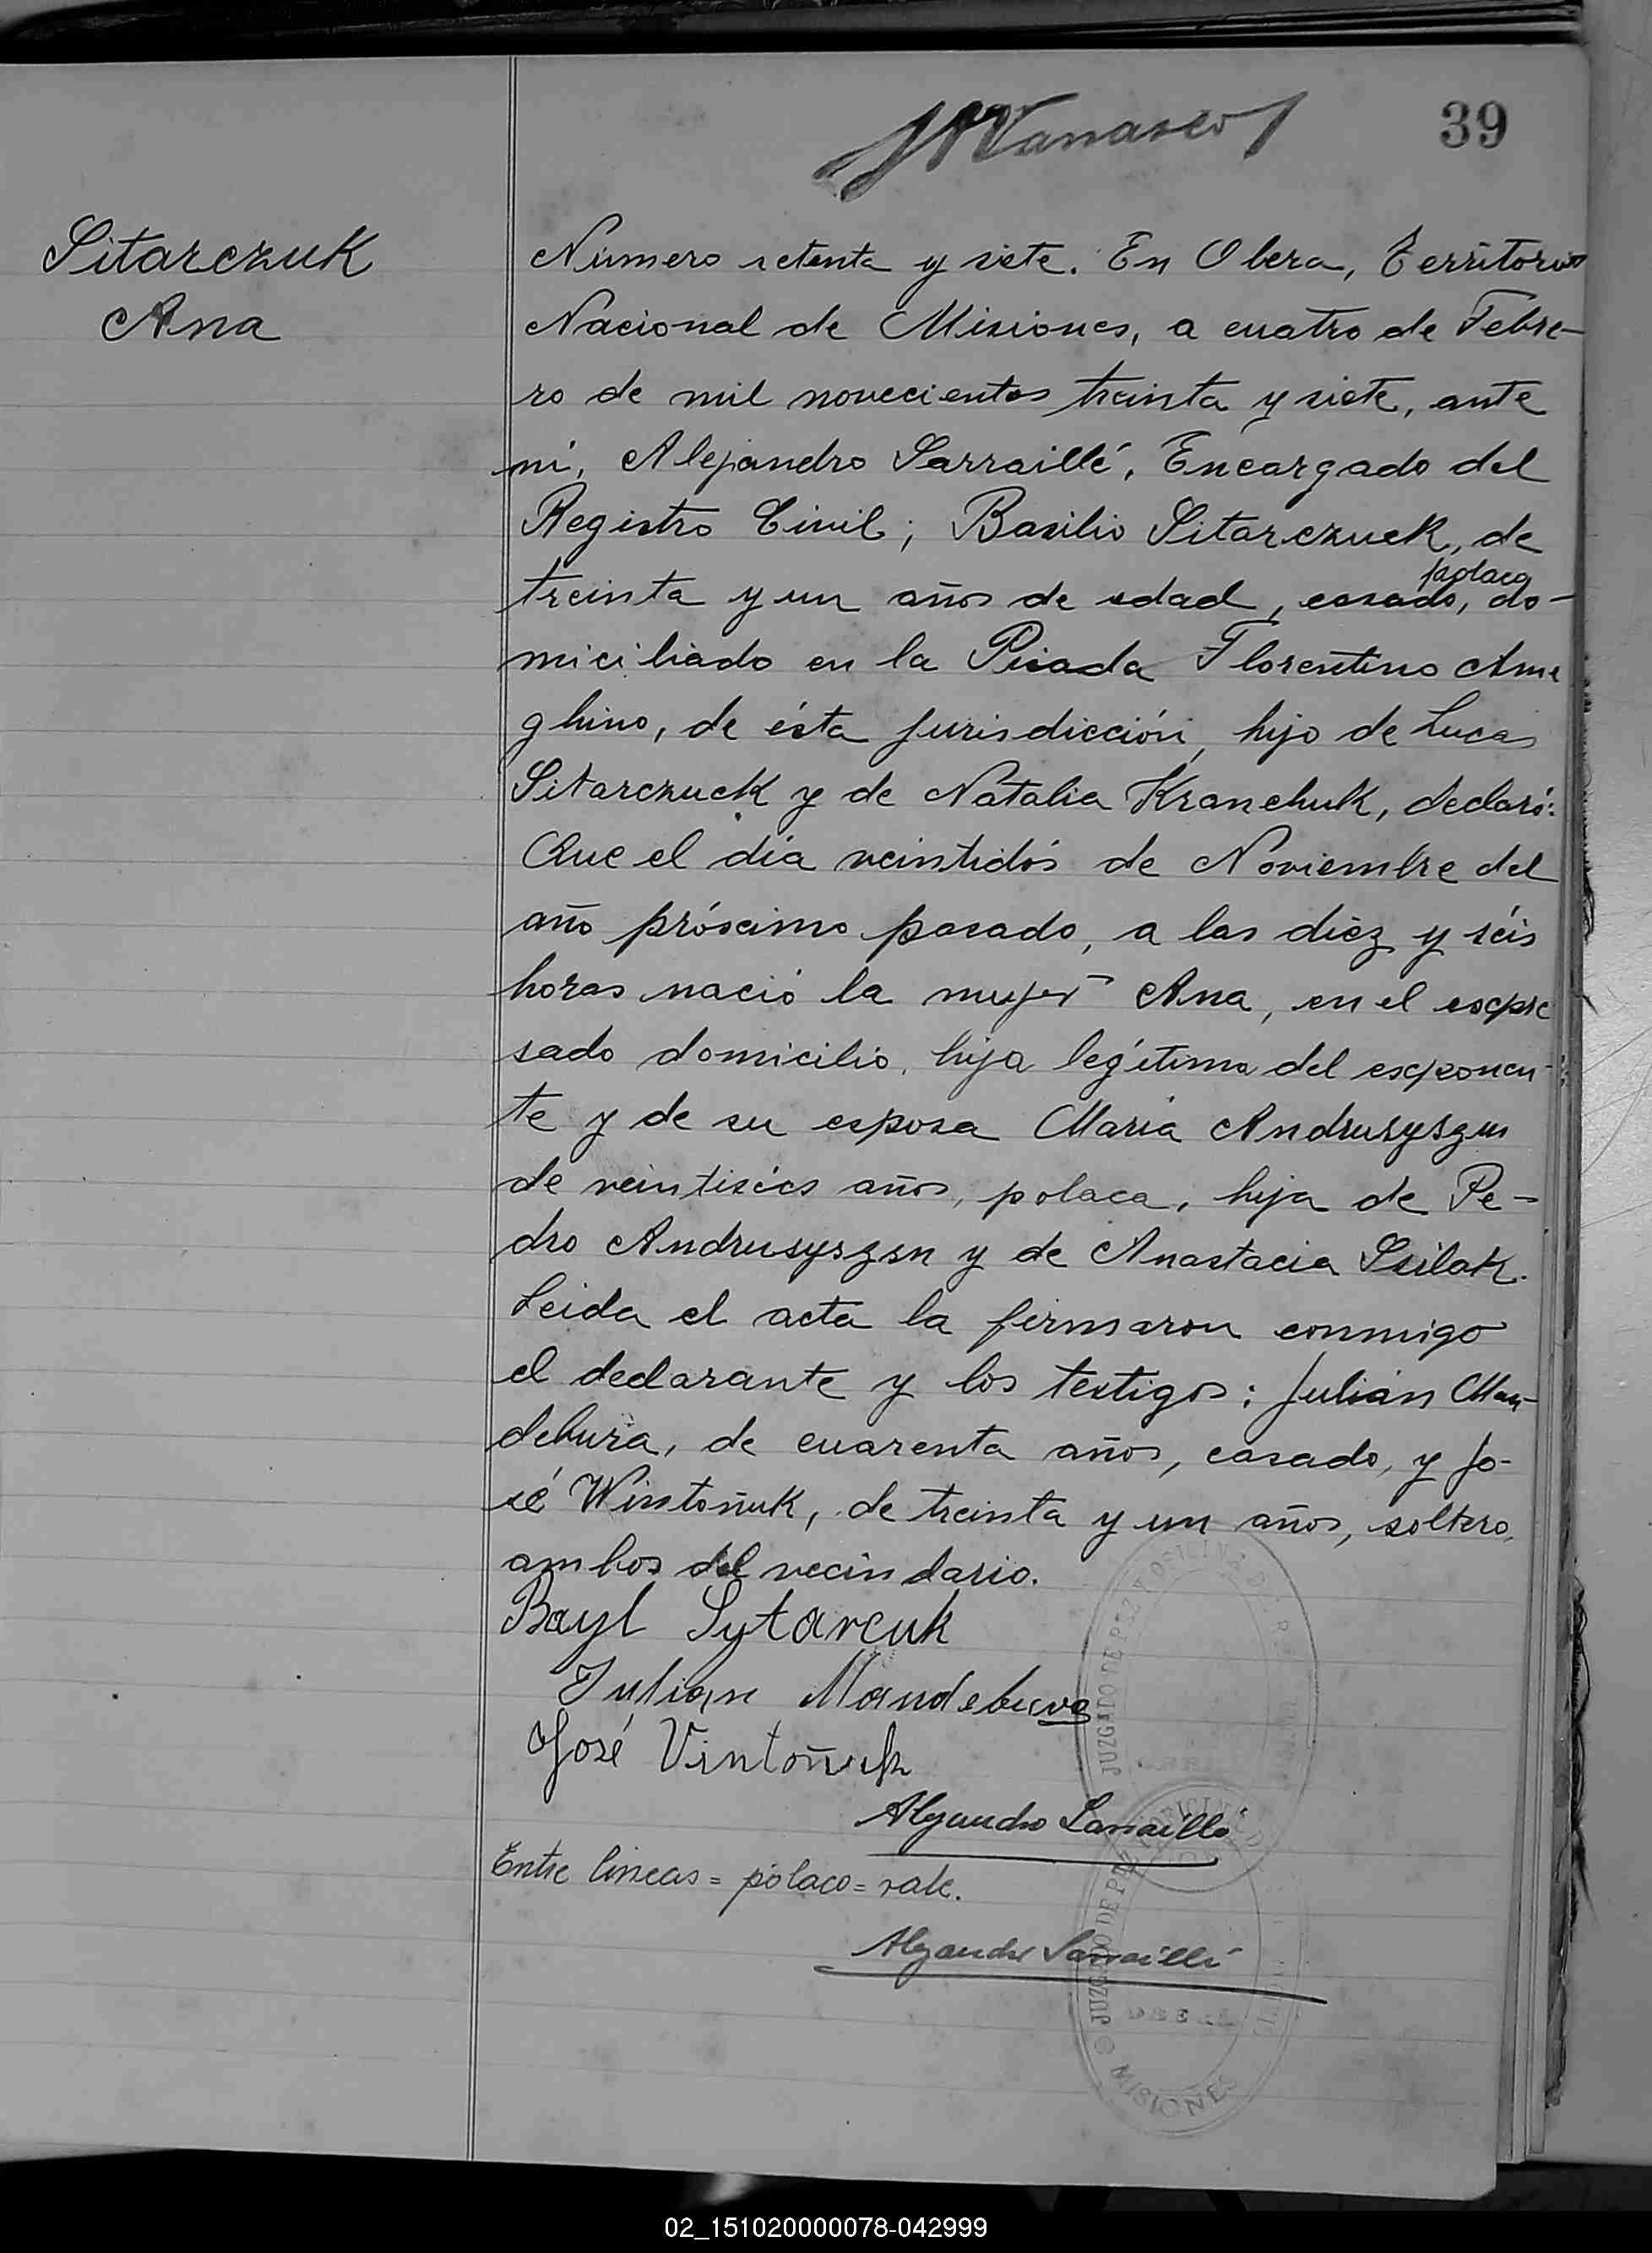 39
Sitarczuk
Ana
Número setenta y siete. En Obera, Territorio
Nacional de Misiones, a cuatro de Febre-
ro de mil novecientos treinta y siete, ante
mí, Alejandro Sarraillé, Encargado del
Registro Civil; Basilio Sitarczuck, de
treinta y un años de edad, casado, polaco, do-
miciliado en la Picada Florentino Ame
ghino, de ésta jurisdicción, hijo de Lucas
Sitarczuck y de Natalia Kranchuk, declaró:
Que el día veintidós de Noviembre del
año próximo pasado, a las diez y séis
horas nació la mujer Ana, en el expre
sado domicilio, hija legítima del exponen-
te y de su esposa María Andrusyszin
de veintiséis años, polaca, hija de Pe-
dro Andrusyszsn y de Anastacia
Leida el acta la firmaron conmigo
el declarante y los testigos: Julián Man-
debura, de cuarenta años, casado, y Jo-
sé Wintoñuk, de treinta y un años, soltero,
ambos del vecindario.
Bayl Sytarcuk
Julian Mandebura
José Vintoñuk
Alejandro Sarraillé
Entre líneas = polaco = vale.
Alejandro Sarraillé
JUZGADO DE PAZ Y OFICINA D
JUZGADO DE PAZ Y OFICINA D
OBERA
MISIONES
02_151020000078-042999